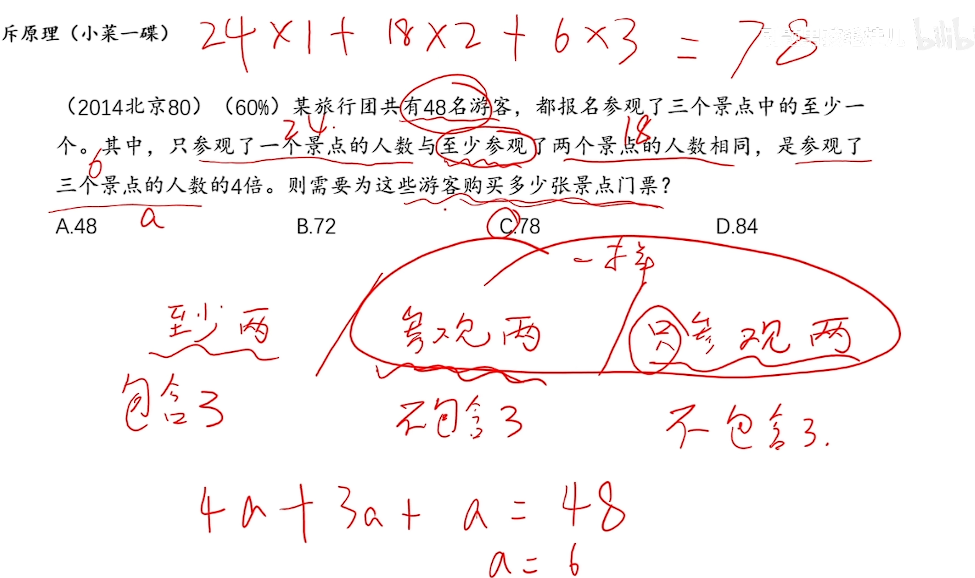 斥原理（小菜一碟）
24×1+18×2+6×3=78
（2014北京80）（60%）某旅行团共有48名游客，都报名参观了三个景点中的至少一
24
18
个。其中，只参观了一个景点的人数与至少参观了两个景点的人数相同，是参观了
6
三个景点的人数的4倍。则需要为这些游客购买多少张景点门票？
a
A.48 B.72 C.78 D.84
一样
至少两 参观两 只参观两
包含3 不包含3 不包含3.
4a+3a+a=48
a=6